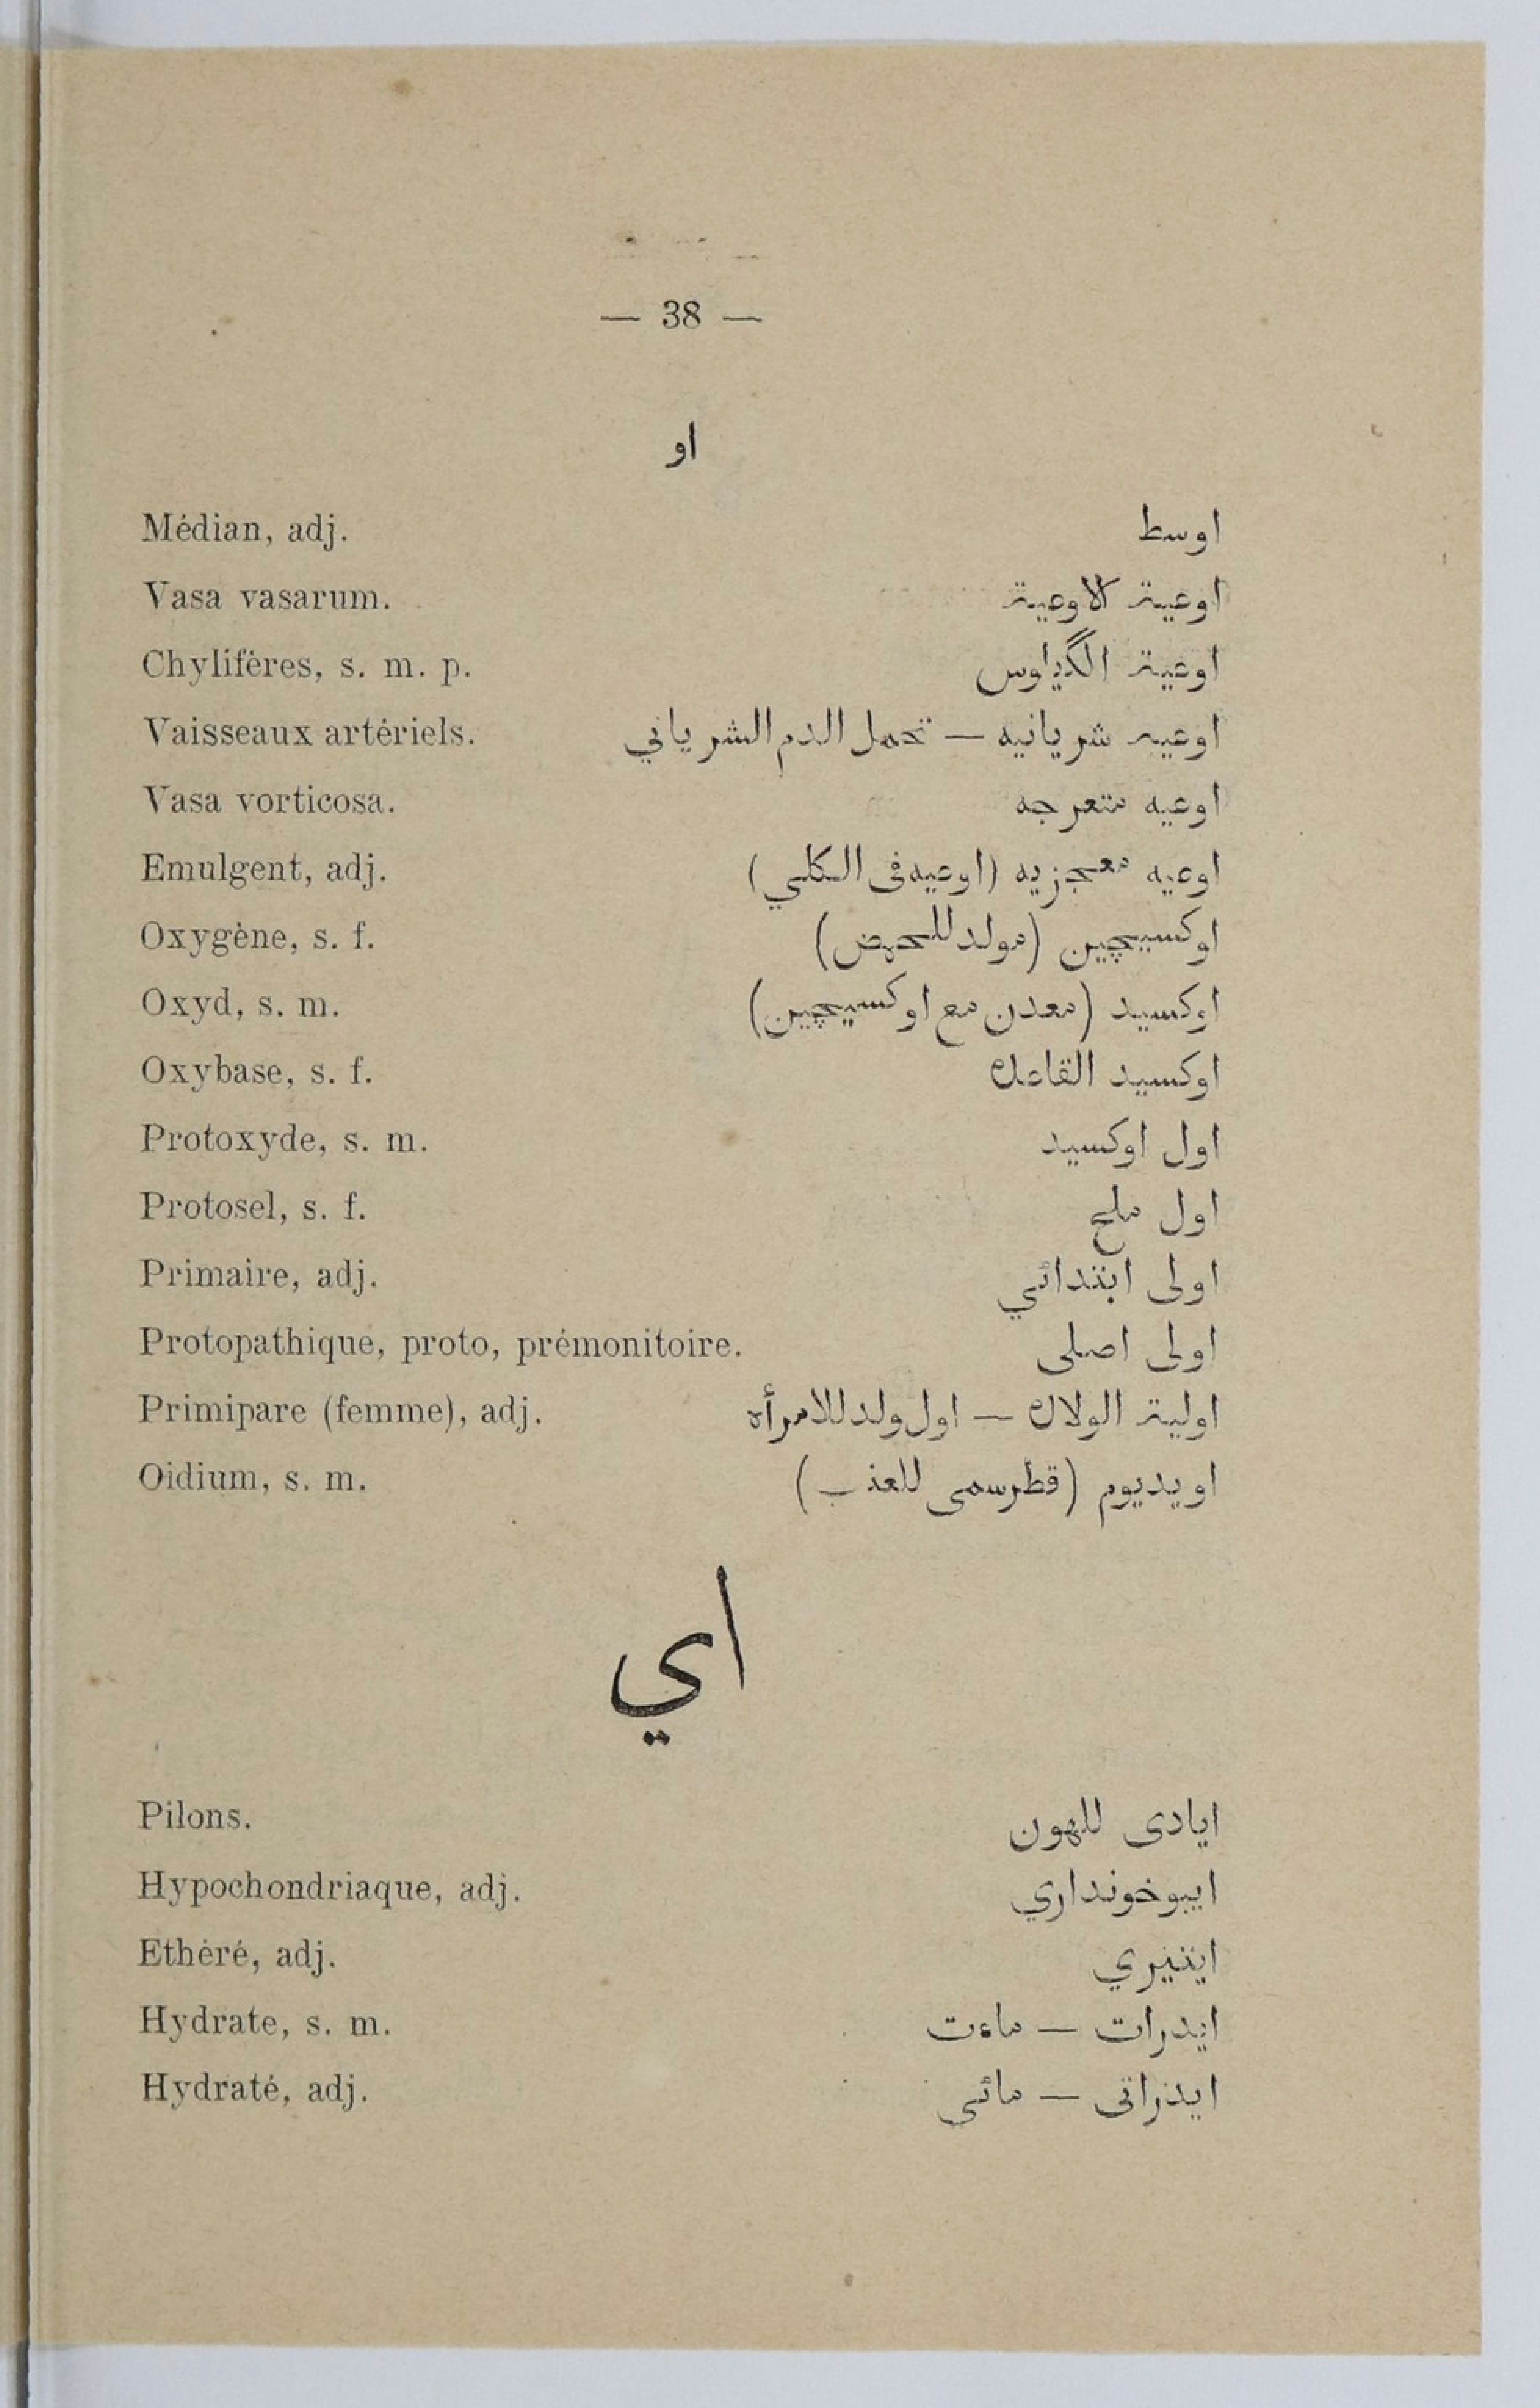 — 38 —
او
Médian, adj. اوسط
Vasa vasarum. اوعية الاوعية
Chylifères, s. m. p. اوعية الكيلوس
Vaisseaux artériels. اوعيه شريانيه — تحمل الدم الشرياني
Vasa vorticosa. اوعيه متعرجه
Emulgent, adj. اوعيه معجزيه (اوعيه فى الكلي)
Oxygène, s. f. اوكسيچين (مولد للحمض)
Oxyd, s. m. اوكسيد (معدن مع اوكسيچين)
Oxybase, s. f. اوكسيد القاعدة
Protoxyde, s. m. اول اوكسيد
Protosel, s. f. اول ملح
Primaire, adj. اولى ابتدائي
Protopathique, proto, prémonitoire. اولى اصلى
Primipare (femme), adj. اولية الولادة — اول ولد للامرأه
Oidium, s. m. اويديوم (فطر سمى للعنب)
اي
Pilons. ايادى للهون
Hypochondriaque, adj. ايبوخونداري
Ethéré, adj. ايتيري
Hydrate, s. m. ايدرات — ماءت
Hydraté, adj. ايدراتى — مائى